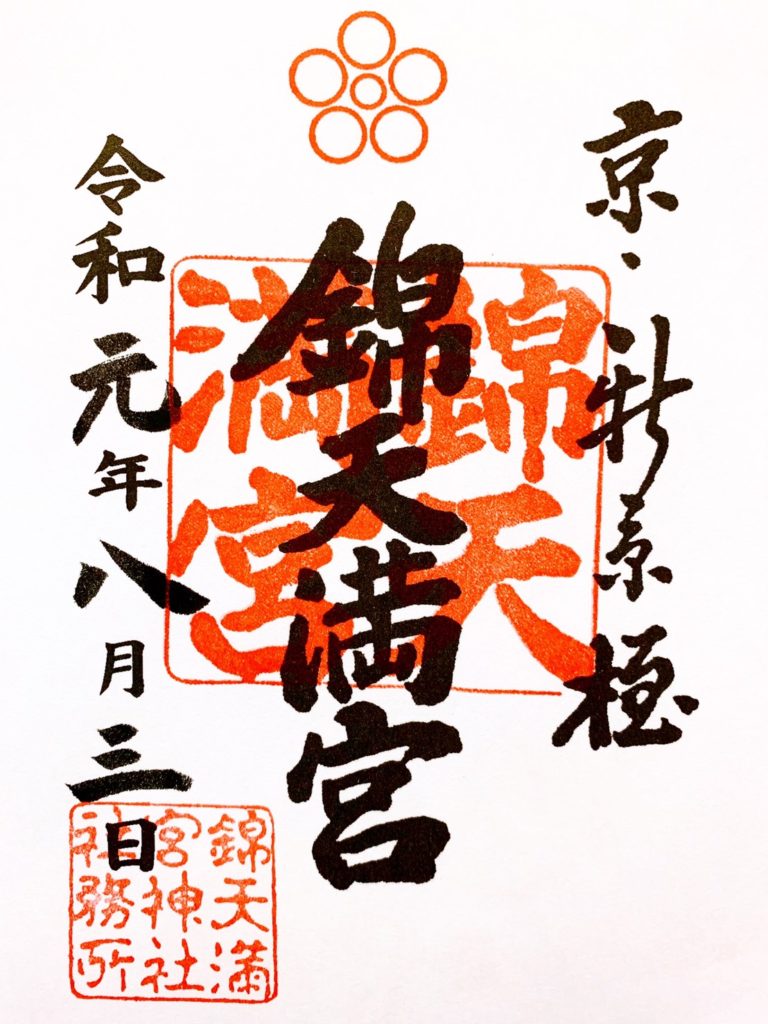 京・新京極
錦天満宮
錦天満宮
令和元年八月三日
錦天満
宮神社
社務所